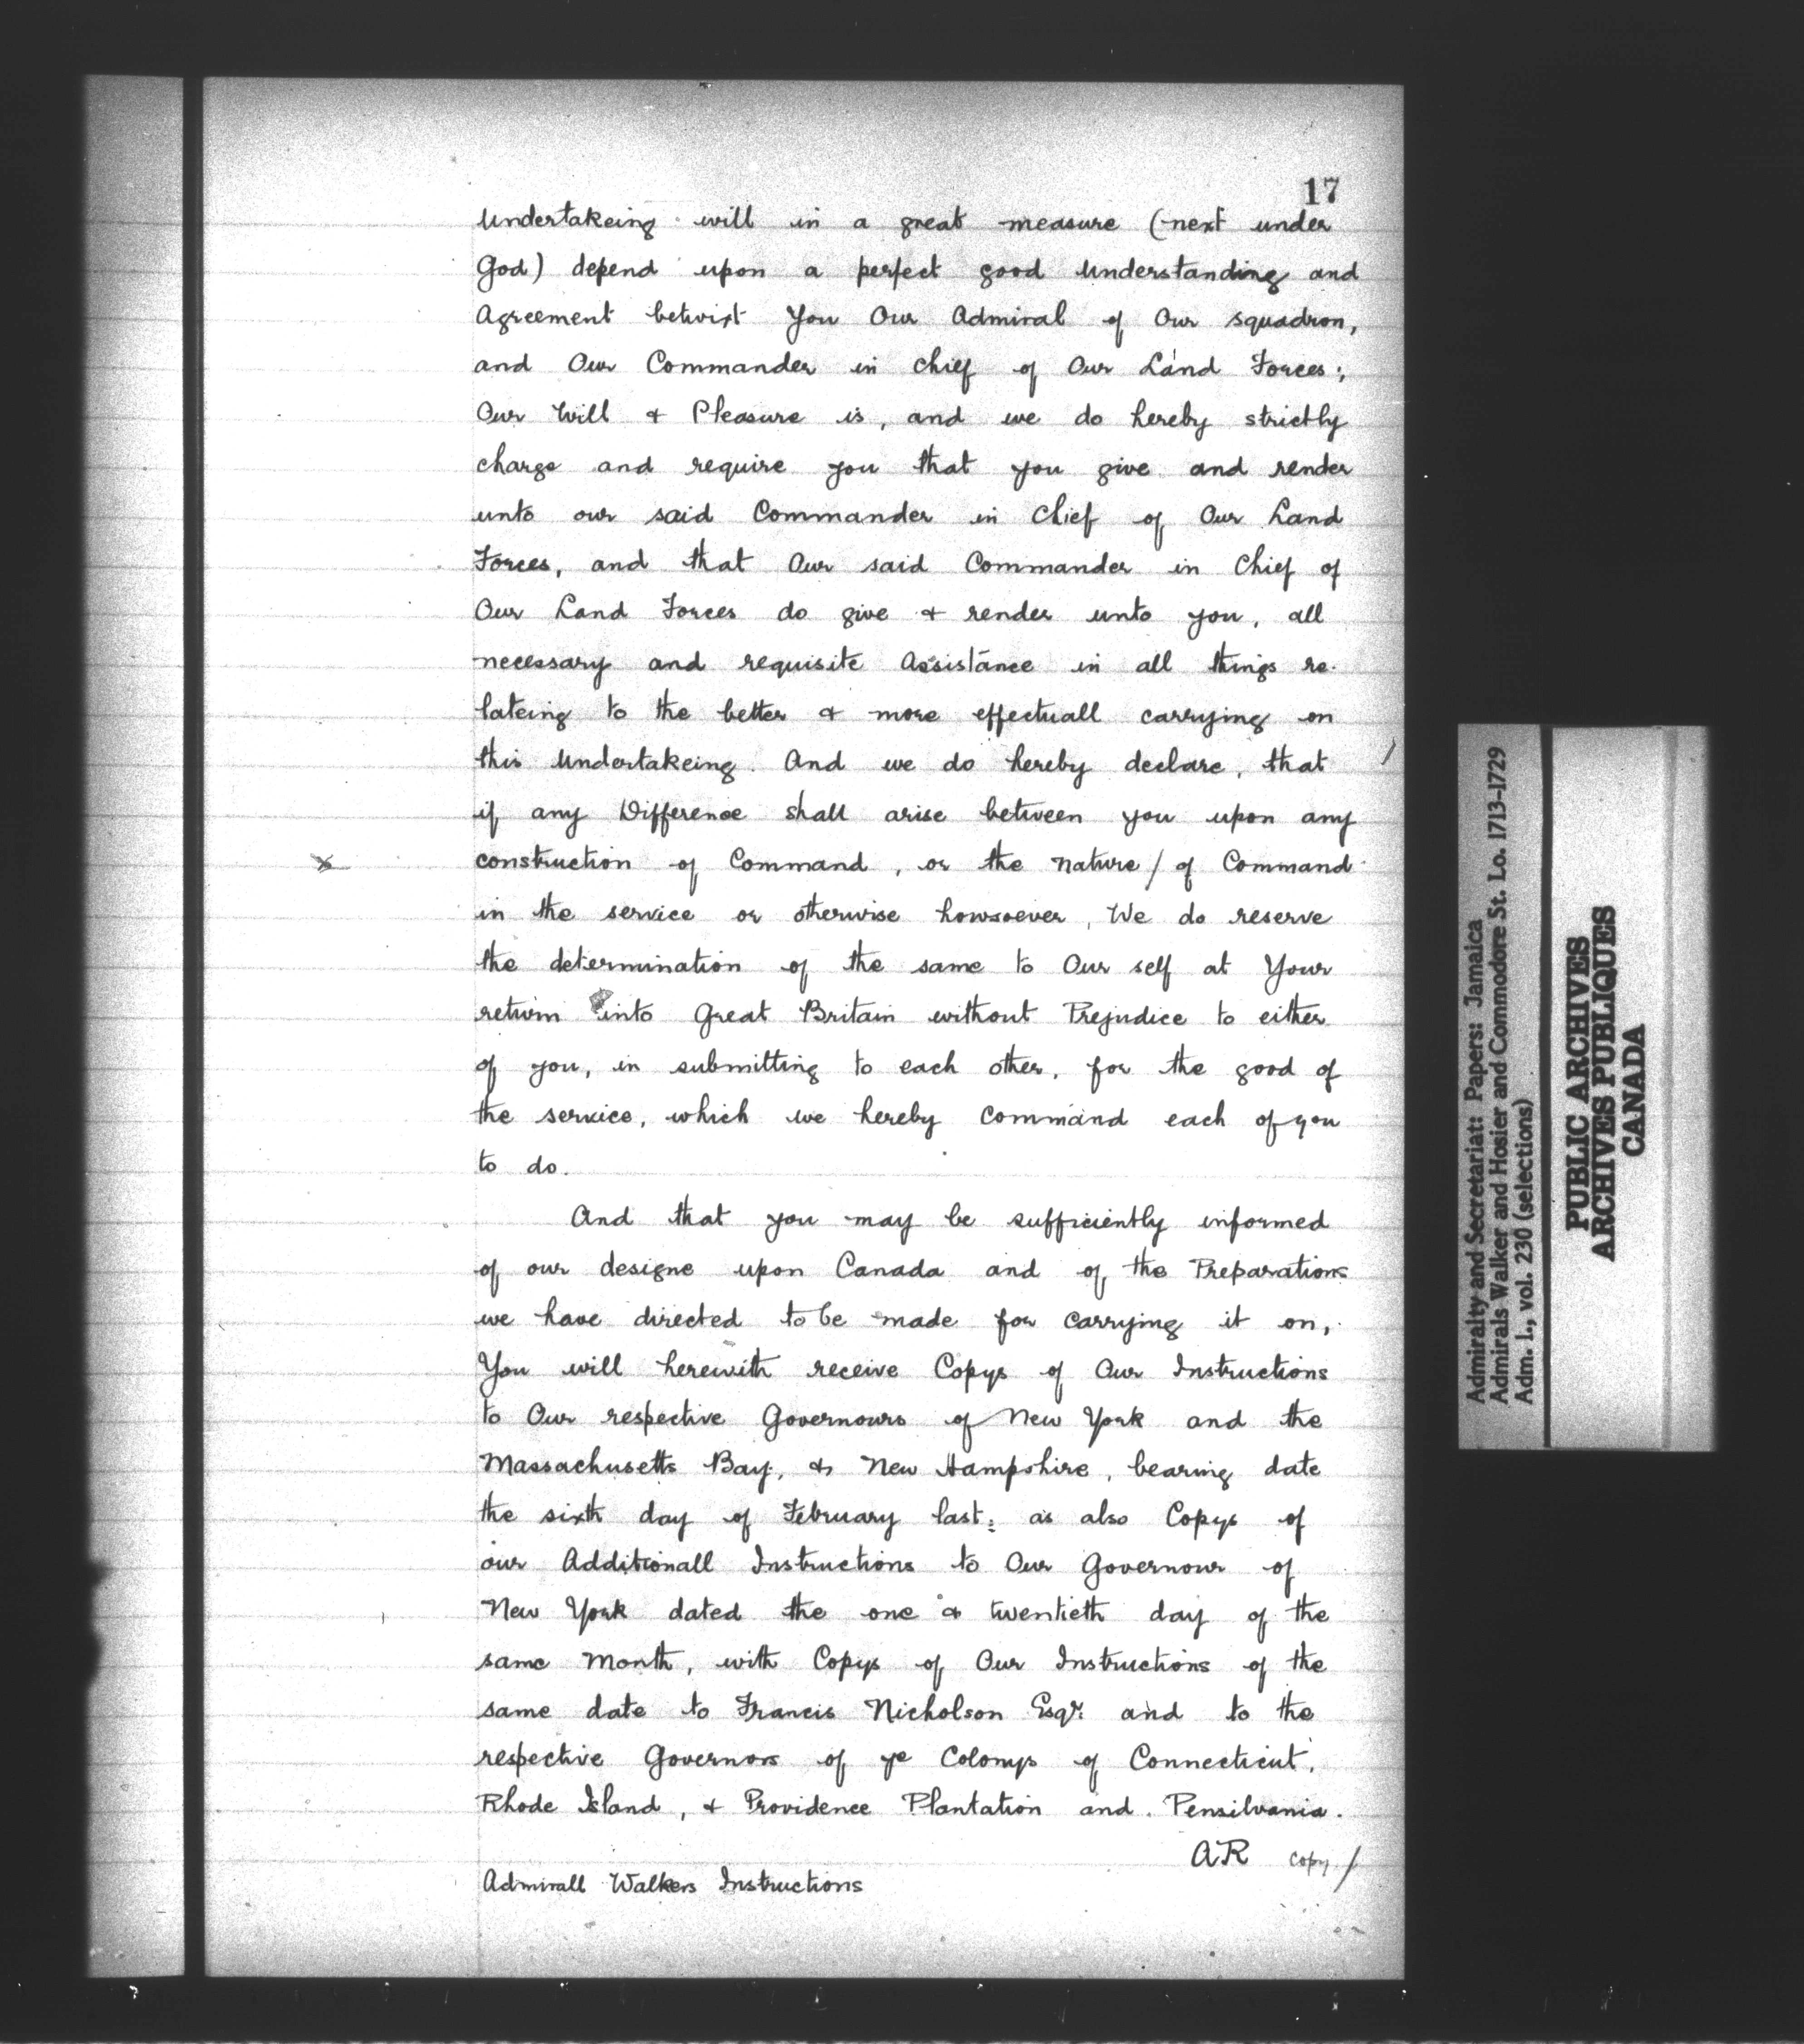 17
Undertakeing will in a great measure (next under
God) depend upon a perfect good Understanding and
Agreement betwixt You Our Admiral of Our squadron,
and Our Commander in chief of Our Land Forces;
Our Will & Pleasure is, and we do hereby strictly
charge and require you that you give and render
unto our said Commander in Chief of Our Land
Forces, and that Our said Commander in Chief of
Our Land Forces do give & render unto you, all
necessary and requisite Assistance in all things re-
lateing to the better & more effectuall carrying on
this Undertakeing. And we do hereby declare, that /
if any Difference shall arise between you upon any
x construction of Command, or the Nature / of Command
in the service or otherwise howsoever, We do reserve
the determination of the same to Our self at Your
return into Great Britain without Prejudice to either
of you, in submitting to each other, for the good of
the service, which we hereby Command each of you
to do.
And that you may be sufficiently informed
of our designe upon Canada and of the Preparations
we have directed to be made for carrying it on,
You will herewith receive Copys of Our Instructions
to Our respective Governours of New York and the
Massachusetts Bay, & New Hampshire, bearing date
the sixth day of February last: as also Copys of
our Additionall Instructions to Our Governour of
New York dated the one & twentieth day of the
same Month, with Copys of Our Instructions of the
same date to Francis Nicholson Esqr. and to the
respective Governors of ye Colonys of Connecticut,
Rhode Island, & Providence Plantation and Pensilvania.
AR copy /
Admirall Walkers Instructions
Admiralty and Secretariat: Papers: Jamaica
Admirals Walker and Hosier and Commodore St. Lo. 1713-1729
Adm. 1., vol. 230 (selections)
PUBLIC ARCHIVES
ARCHIVES PUBLIQUES
CANADA